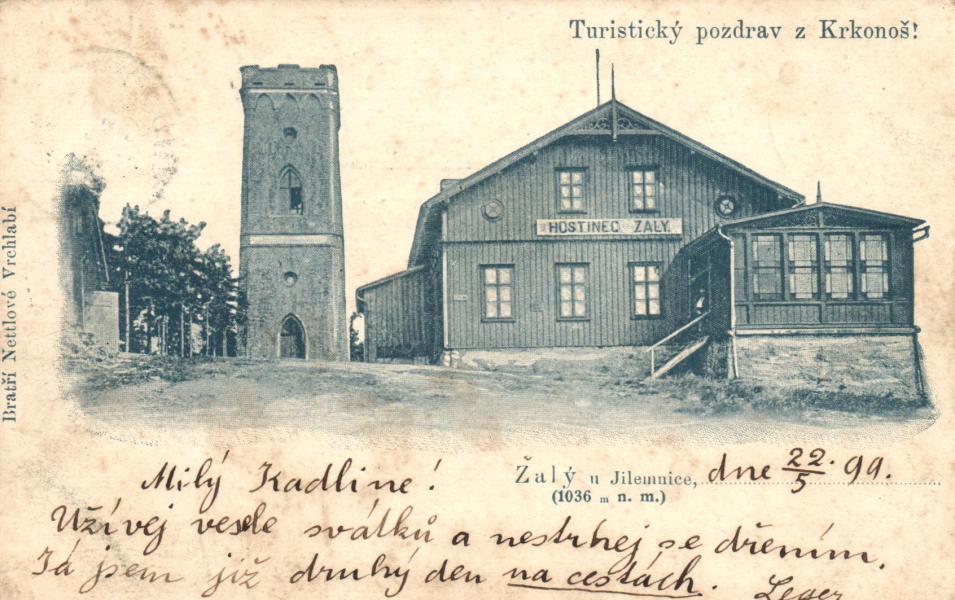 Turistický pozdrav z Krkonoš!
HOSTINEC ŽALÝ.
Bratří Nettlové Vrchlabí
Žalý u Jilemnice, dne 22/5. 99.
(1036 m n. m.)
Milý Kadline!
Užívej vesele svátků a nestrhej se dřením.
Já jsem již druhý den na cestách. Leger